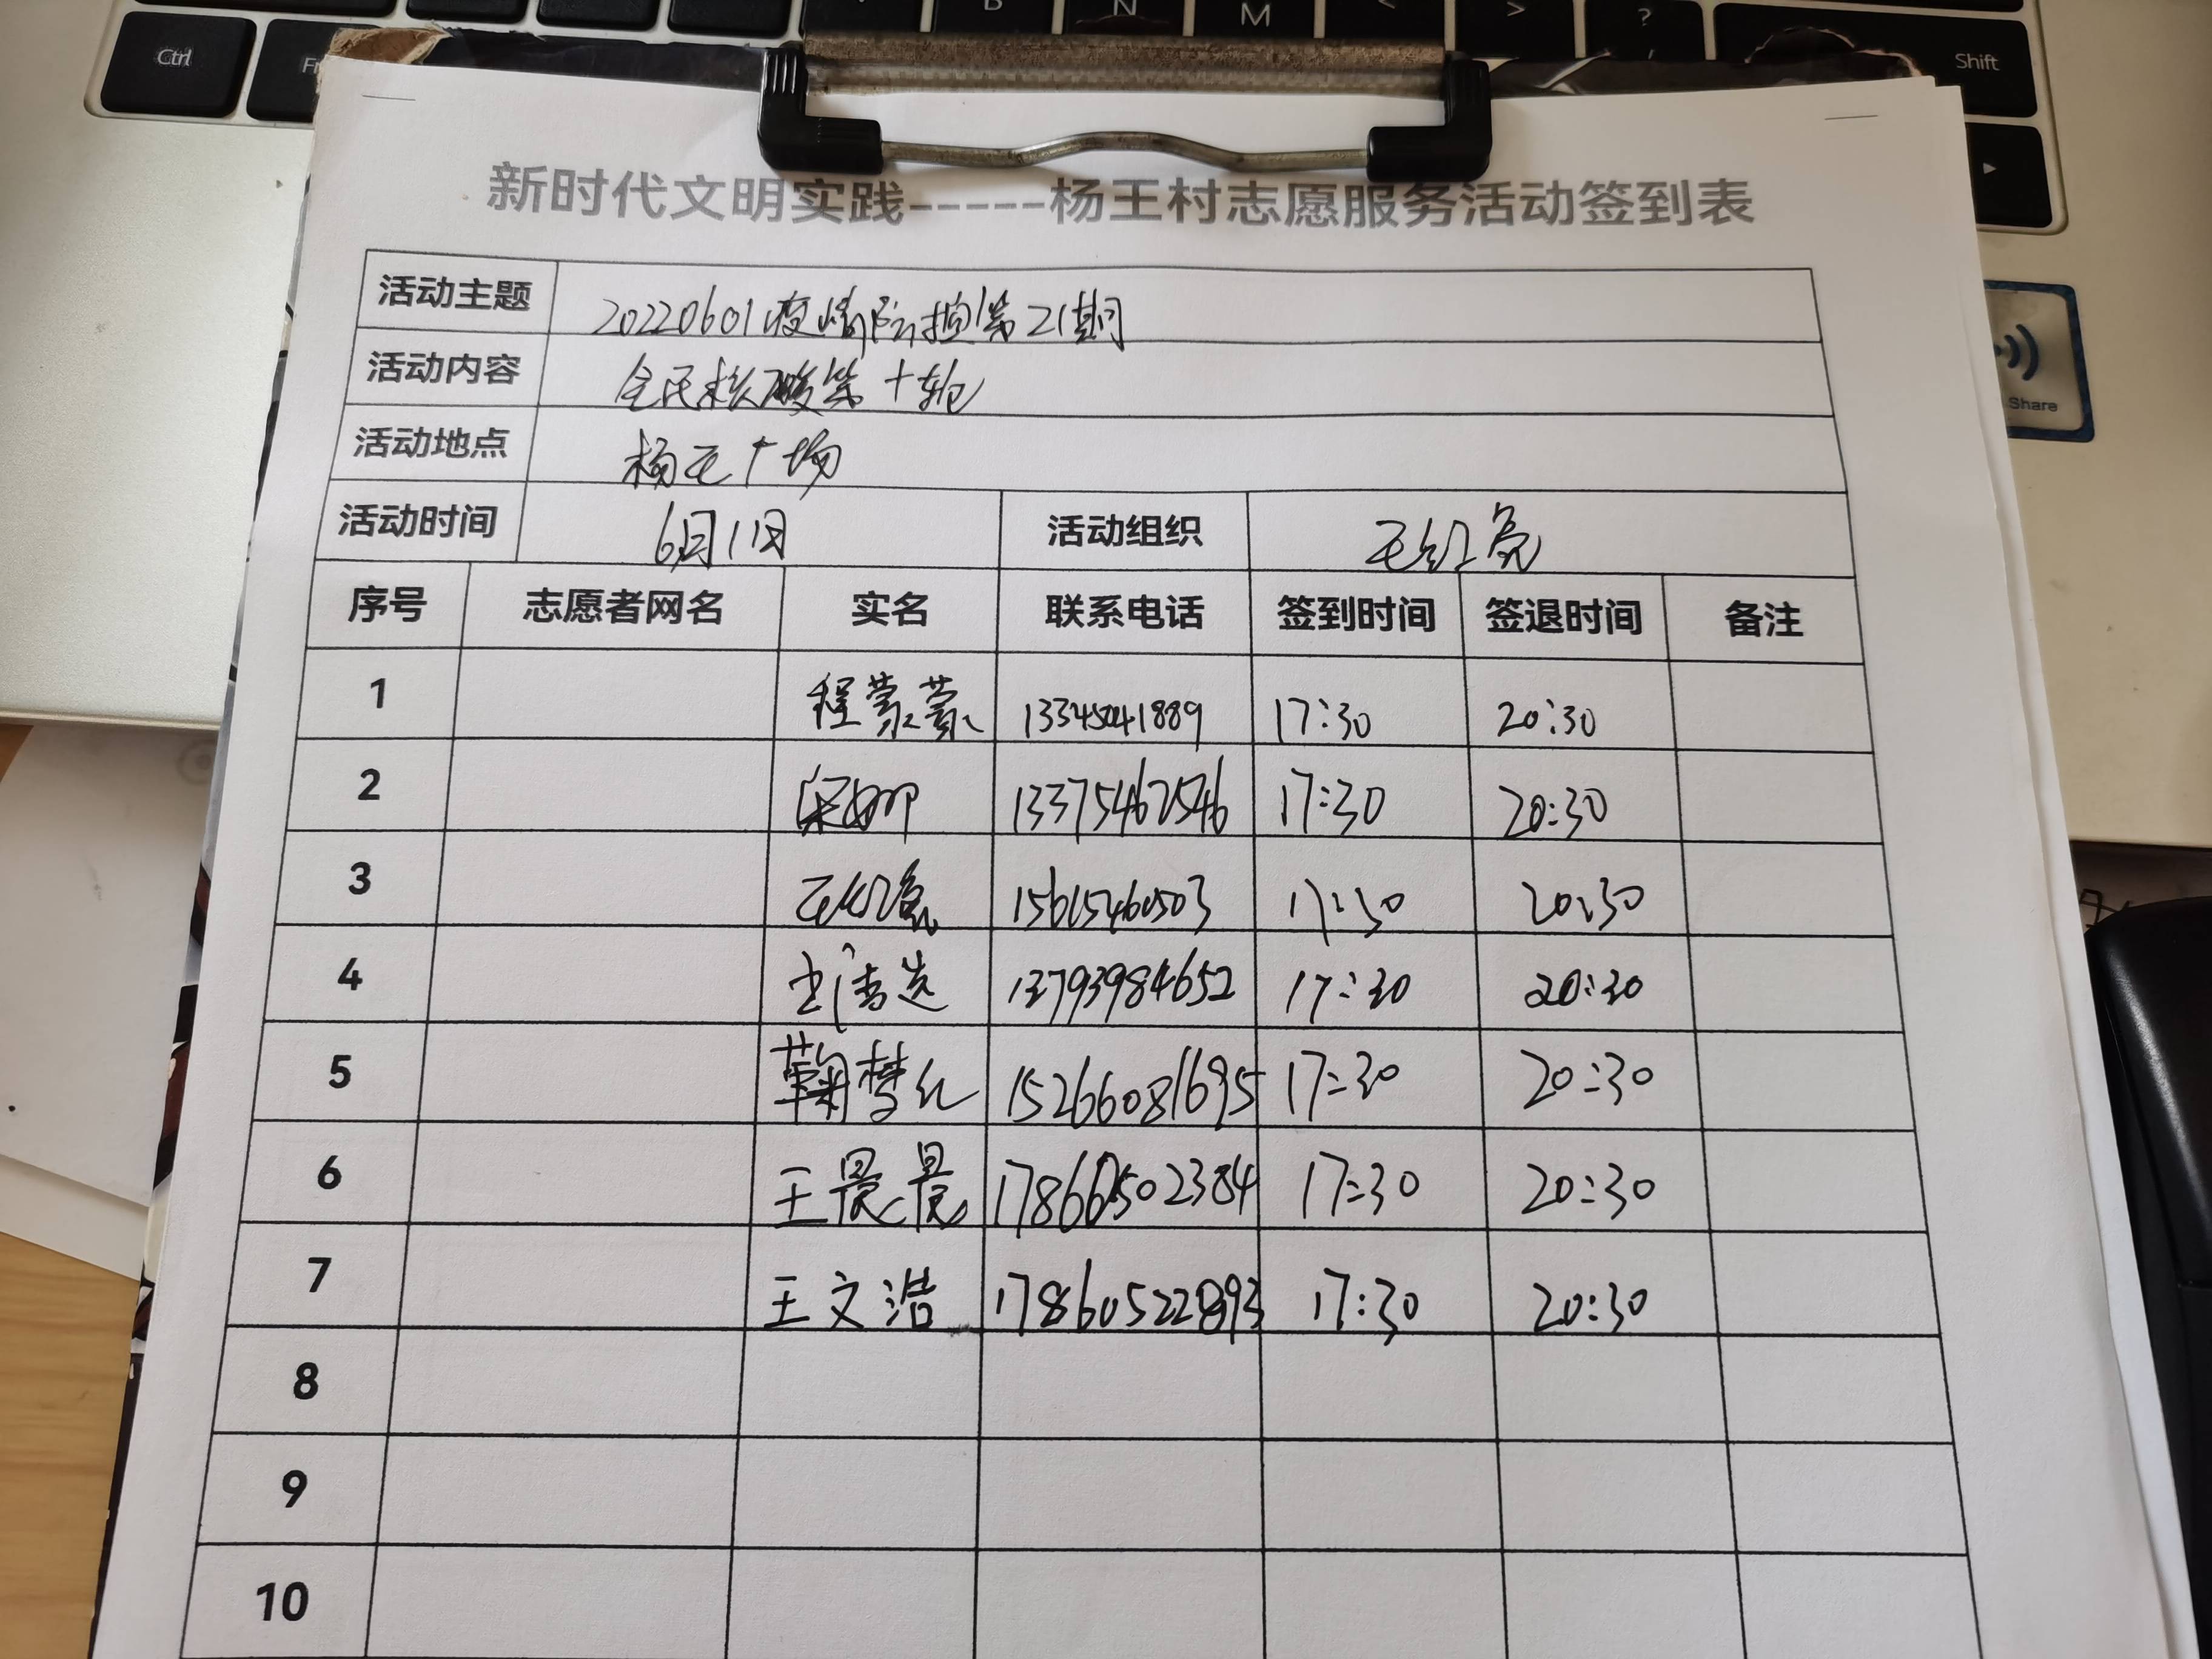 Ctrl
B N M < > ?
Shift
Share
新时代文明实践-----杨王村志愿服务活动签到表
活动主题 20220601疫情防控第21期
活动内容 全民核酸第十轮
活动地点 杨王广场
活动时间 6月1日 活动组织 王红亮
序号 志愿者网名 实名 联系电话 签到时间 签退时间 备注
1 程蒙蒙 13345041889 17:30 20:30
2 宋娜 13375467546 17:30 20:30
3 王红亮 15615460503 17:30 20:30
4 13793984652 17:30 20:30
5 鞠梦红 15266081695 17:30 20:30
6 王晨晨 17:30 20:30
7 王文浩 17:30 20:30
8
9
10